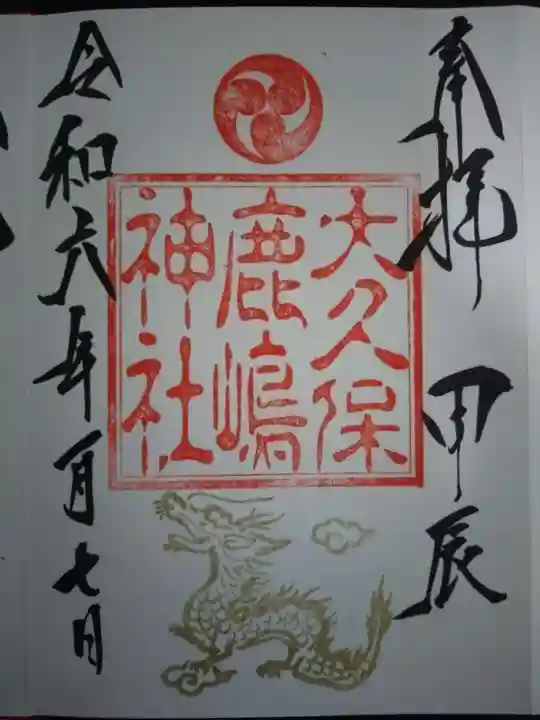 奉拝 甲辰
大久保
鹿嶋
神社
令和六年一月七日